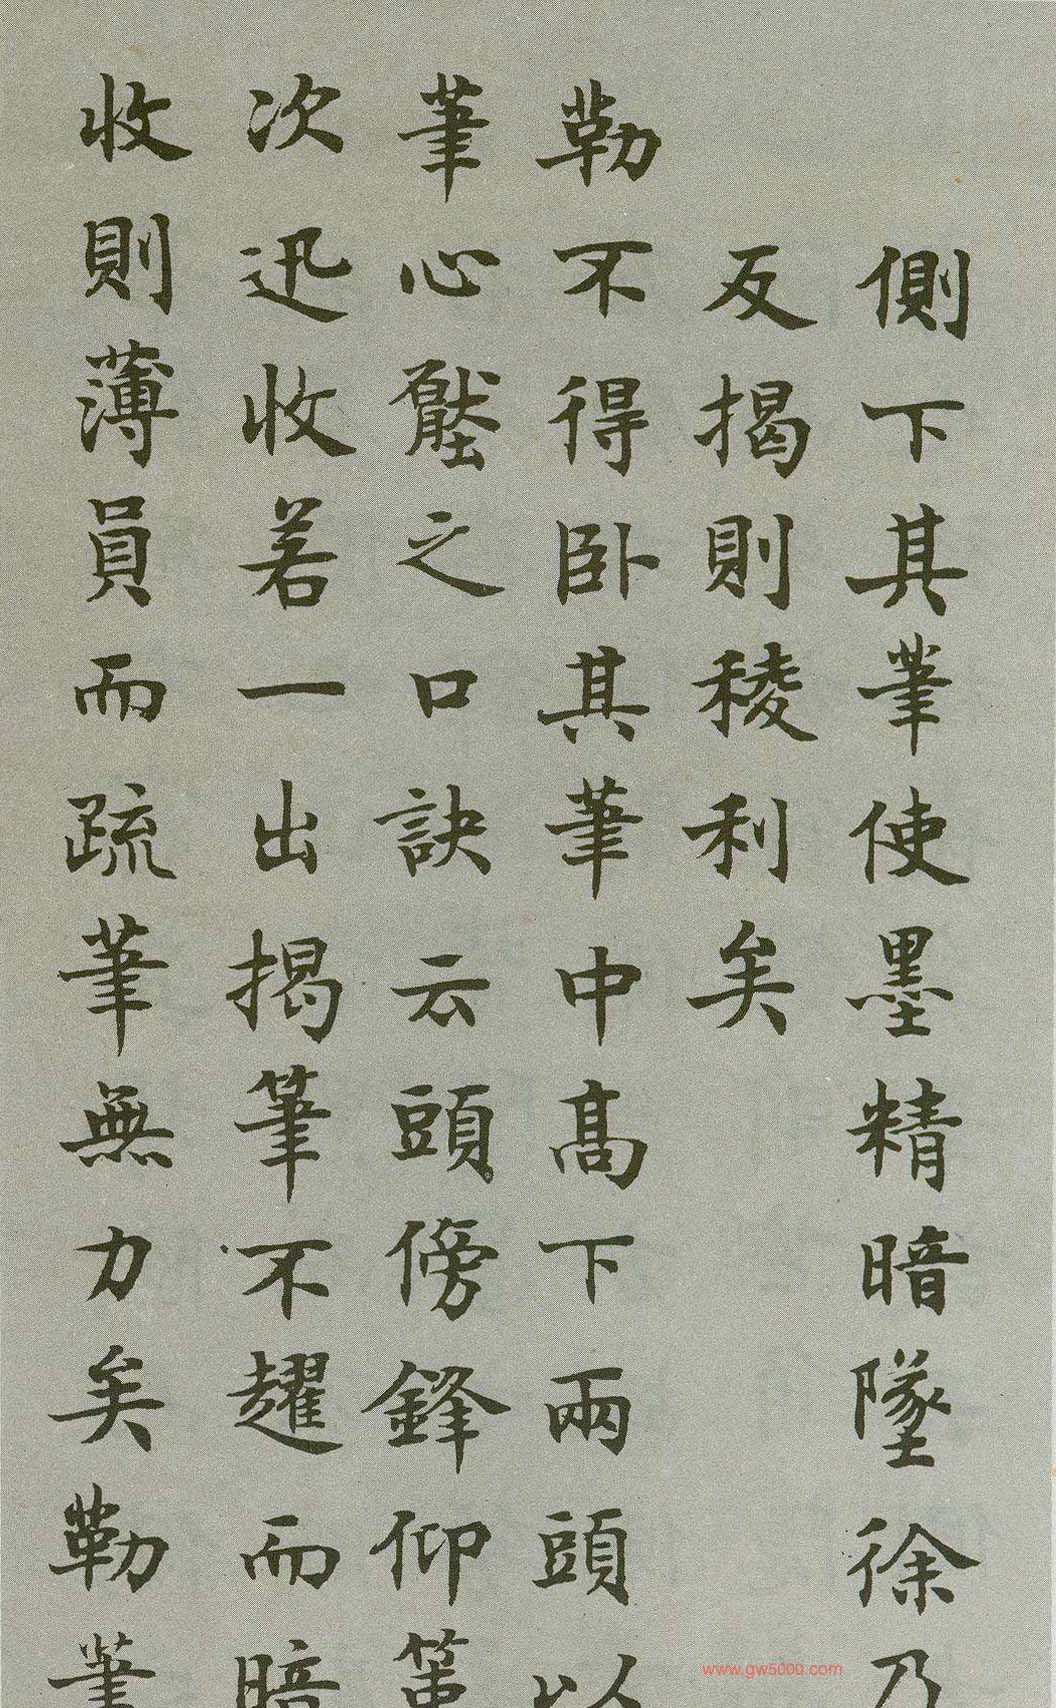 側下其筆使墨精暗墜徐乃
反揭則稜利矣
勒不得卧其筆中高下兩頭以
筆心壓之口訣云頭傍鋒仰第
次迅收若一出揭筆不趯而暗
收則薄員而疏筆無力矣勒筆
www.gw5000.com